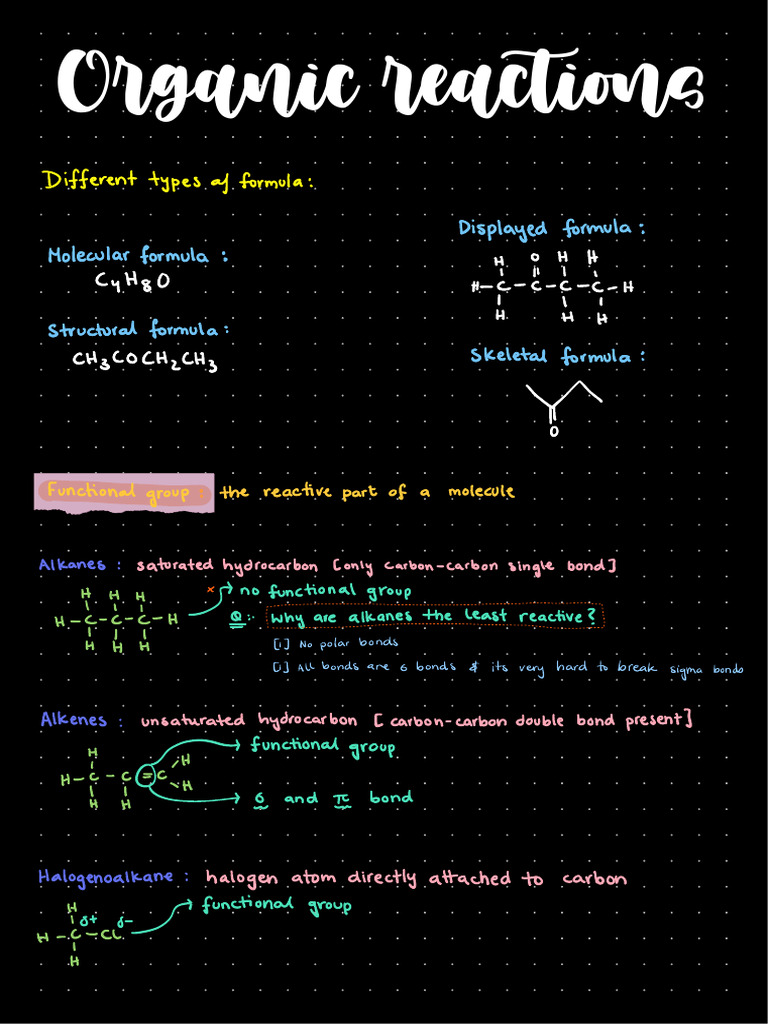 Organic reactions
Different types of formula:
Molecular formula :
C4H8O
Structural formula:
CH3COCH2CH3
Displayed formula:
H O H H
H-C-C-C-C-H
H H H
Skeletal formula:
O
Functional group: the reactive part of a molecule
Alkanes : saturated hydrocarbon [only carbon-carbon single bond]
H H H
H-C-C-C-H
H H H
x → no functional group
Q:- Why are alkanes the least reactive?
[1] No polar bonds
[1] All bonds are 6 bonds & its very hard to break sigma bonds
Alkenes : unsaturated hydrocarbon [carbon-carbon double bond present]
H H
H-C-C=C
H H H
functional group
6 and π bond
Halogenoalkane : halogen atom directly attached to carbon
H
δ+ δ-
H-C-Cl
H
functional group